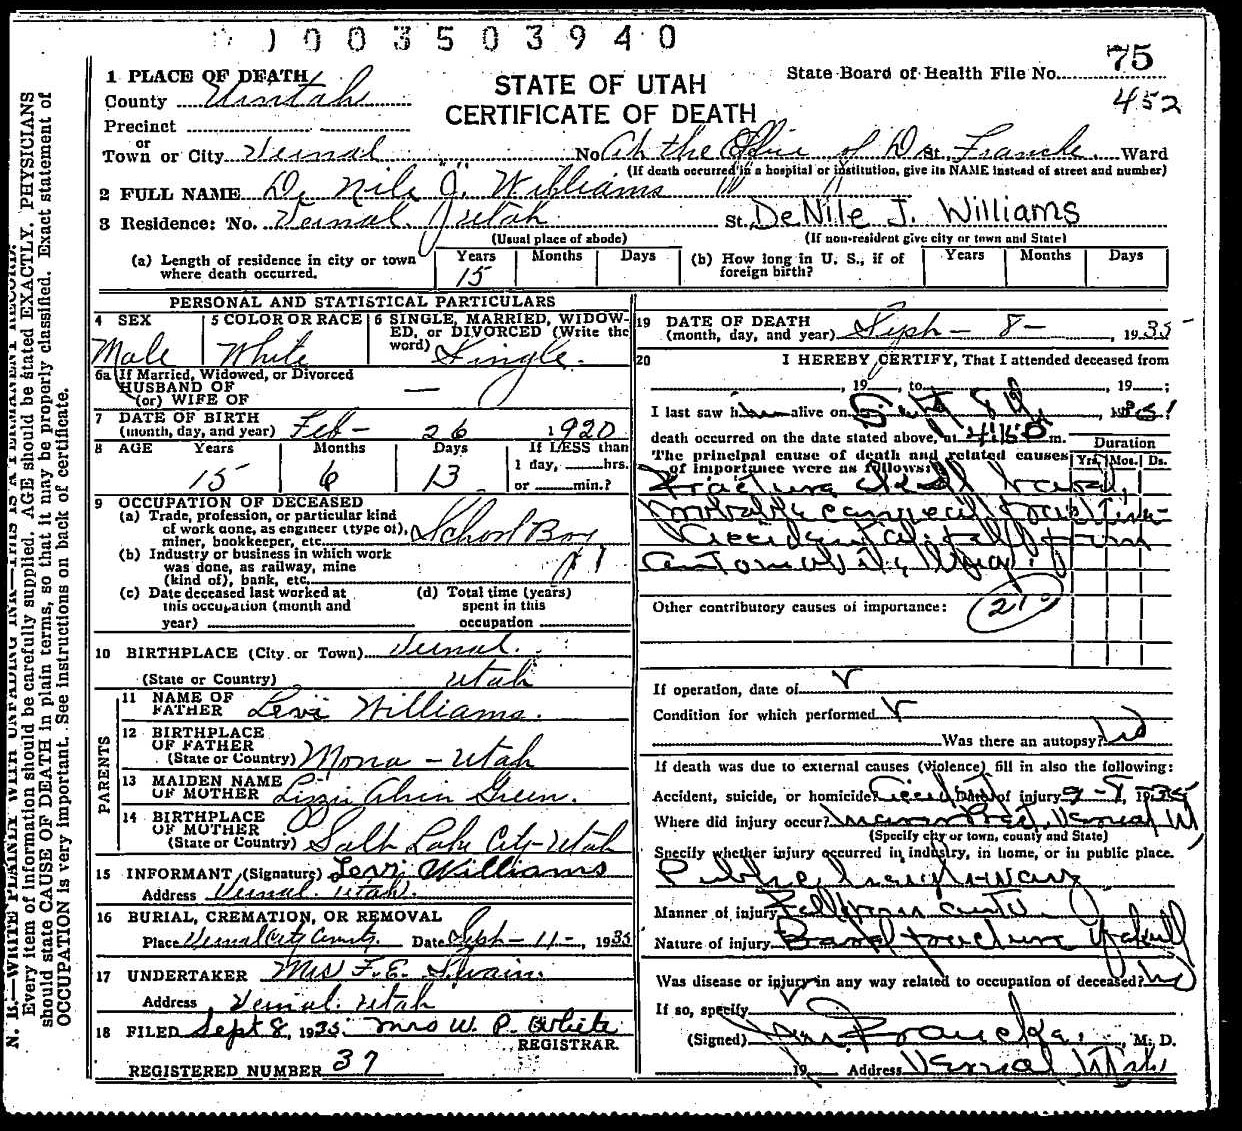 1003503940
75
State Board of Health File No.
452
STATE OF UTAH
CERTIFICATE OF DEATH
1 PLACE OF DEATH
County Uintah
Precinct
or
Town or City Vernal No. At the Office of Dr. St. Francke Ward
(If death occurred in a hospital or institution, give its NAME instead of street and number)
2 FULL NAME De Nile J. Williams
3 Residence: No. Vernal Utah St. DeNile J. Williams
(Usual place of abode) (If non-resident give city or town and State)
(a) Length of residence in city or town where death occurred. Years 15 Months Days (b) How long in U. S., if of foreign birth? Years Months Days
PERSONAL AND STATISTICAL PARTICULARS
4 SEX Male
5 COLOR OR RACE White
6 SINGLE, MARRIED, WIDOWED, or DIVORCED (Write the word) Single.
6a If Married, Widowed, or Divorced
HUSBAND OF
(or) WIFE OF —
7 DATE OF BIRTH
(month, day, and year) Feb - 26 1920
8 AGE Years 15 Months 6 Days 13 If LESS than 1 day, hrs. or min.?
9 OCCUPATION OF DECEASED
(a) Trade, profession, or particular kind of work done, as engineer (type of), miner, bookkeeper, etc. School Boy
(b) Industry or business in which work was done, as railway, mine (kind of), bank, etc.
(c) Date deceased last worked at this occupation (month and year)
(d) Total time (years) spent in this occupation
10 BIRTHPLACE (City or Town) Vernal.
(State or Country) Utah
PARENTS
11 NAME OF FATHER Levi Williams.
12 BIRTHPLACE OF FATHER
(State or Country) Mona - Utah
13 MAIDEN NAME OF MOTHER Lizzie Green.
14 BIRTHPLACE OF MOTHER
(State or Country) Salt Lake City - Utah
15 INFORMANT (Signature) Levi Williams
Address Vernal. Utah.
16 BURIAL, CREMATION, OR REMOVAL
Place Vernal City Date Sept - 11 -, 1935
17 UNDERTAKER Mrs F. E. Swain.
Address Vernal. Utah
18 FILED Sept 8, 1935. Mrs W. P. White
REGISTRAR.
REGISTERED NUMBER 37
19 DATE OF DEATH
(month, day, and year) Sept - 8 - , 1935
20 I HEREBY CERTIFY, That I attended deceased from
, 19 , to , 19 ;
I last saw him alive on Sept 8th, 1935!
death occurred on the date stated above, at 4:50 m.
The principal cause of death and related causes of importance were as follows: Duration
Yrs. Mos. Ds.
Fracture Skull basal,
Probable cervical fracture
Accidental fall from
automobile
Other contributory causes of importance: 210
If operation, date of
Condition for which performed
Was there an autopsy? No
If death was due to external causes (violence) fill in also the following:
Accident, suicide, or homicide? Accident Date of injury 9-8, 1935
Where did injury occur? Vernal Ut
(Specify city or town, county and State)
Specify whether injury occurred in industry, in home, or in public place.
Public highway
Manner of injury Fell from auto.
Nature of injury Basal fracture of skull
Was disease or injury in any way related to occupation of deceased? No
If so, specify
(Signed) Francke. , M. D.
19 Address Vernal Utah
N. B.—WRITE PLAINLY WITH UNFADING INK—THIS IS A PERMANENT RECORD.
Every item of information should be carefully supplied. AGE should be stated EXACTLY. PHYSICIANS
should state CAUSE OF DEATH in plain terms, so that it may be properly classified. Exact statement of
OCCUPATION is very important. See instructions on back of certificate.